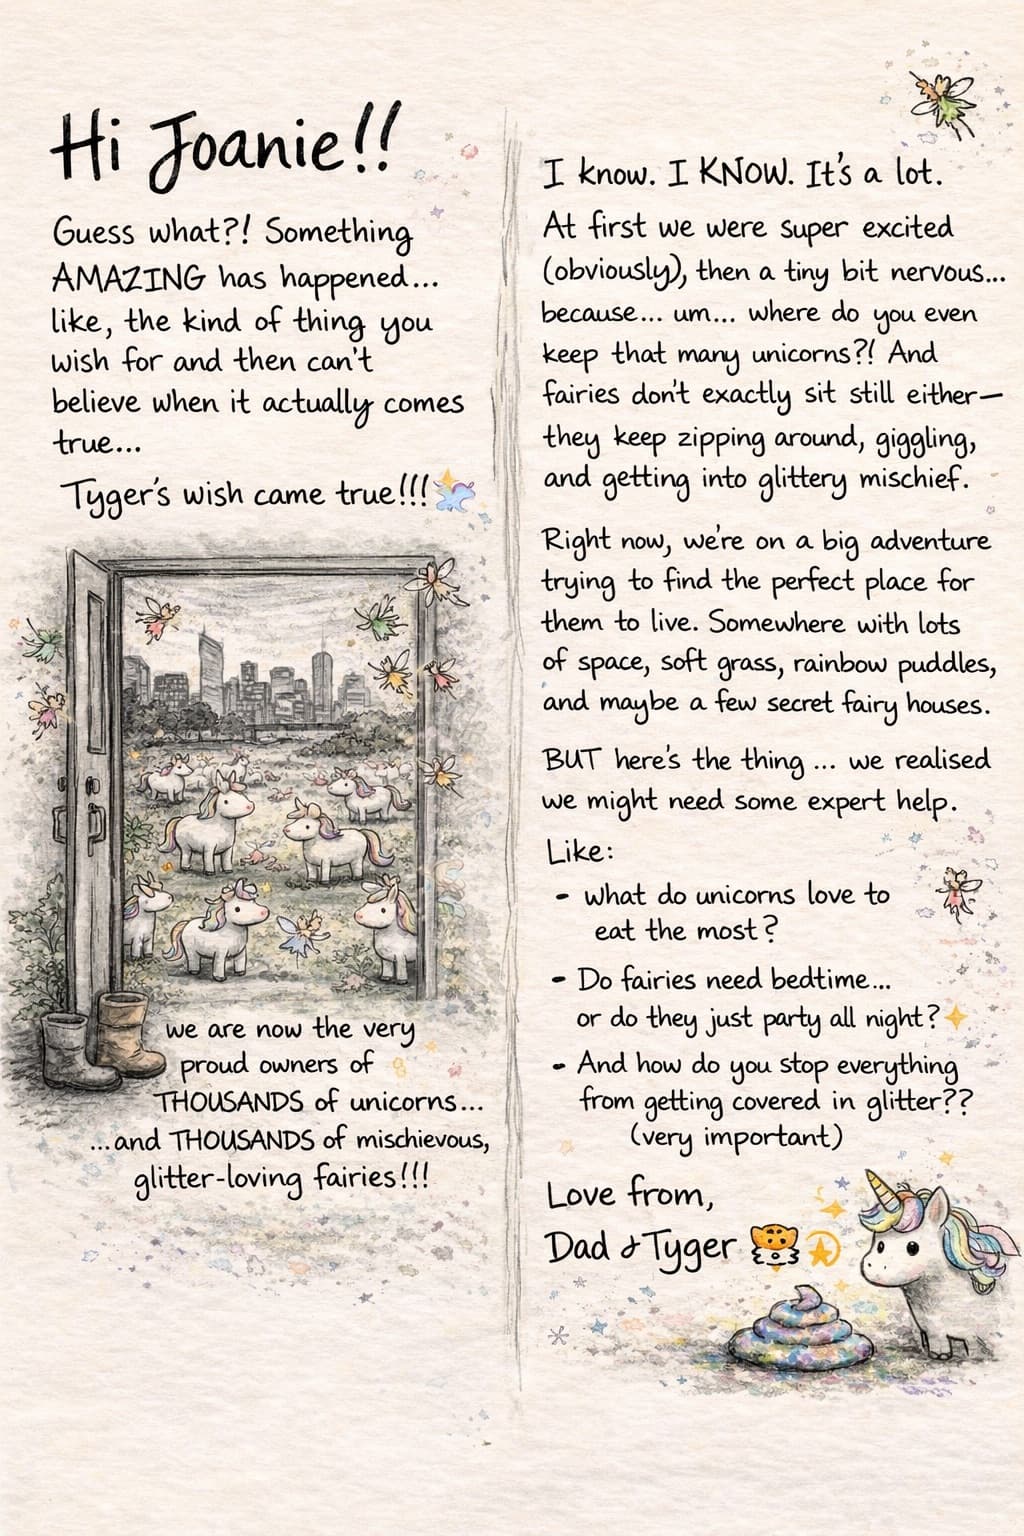 Hi Joanie!!
Guess what?! Something
AMAZING has happened...
like, the kind of thing you
wish for and then can't
believe when it actually comes
true...
Tyger's wish came true!!!
we are now the very
proud owners of
THOUSANDS of unicorns...
...and THOUSANDS of mischievous,
glitter-loving fairies!!!
I know. I KNOW. It's a lot.
At first we were super excited
(obviously), then a tiny bit nervous...
because... um... where do you even
keep that many unicorns?! And
fairies don't exactly sit still either—
they keep zipping around, giggling,
and getting into glittery mischief.
Right now, we're on a big adventure
trying to find the perfect place for
them to live. Somewhere with lots
of space, soft grass, rainbow puddles,
and maybe a few secret fairy houses.
BUT here's the thing ... we realised
we might need some expert help.
Like:
- what do unicorns love to
eat the most?
- Do fairies need bedtime...
or do they just party all night?
- And how do you stop everything
from getting covered in glitter??
(very important)
Love from,
Dad & Tyger